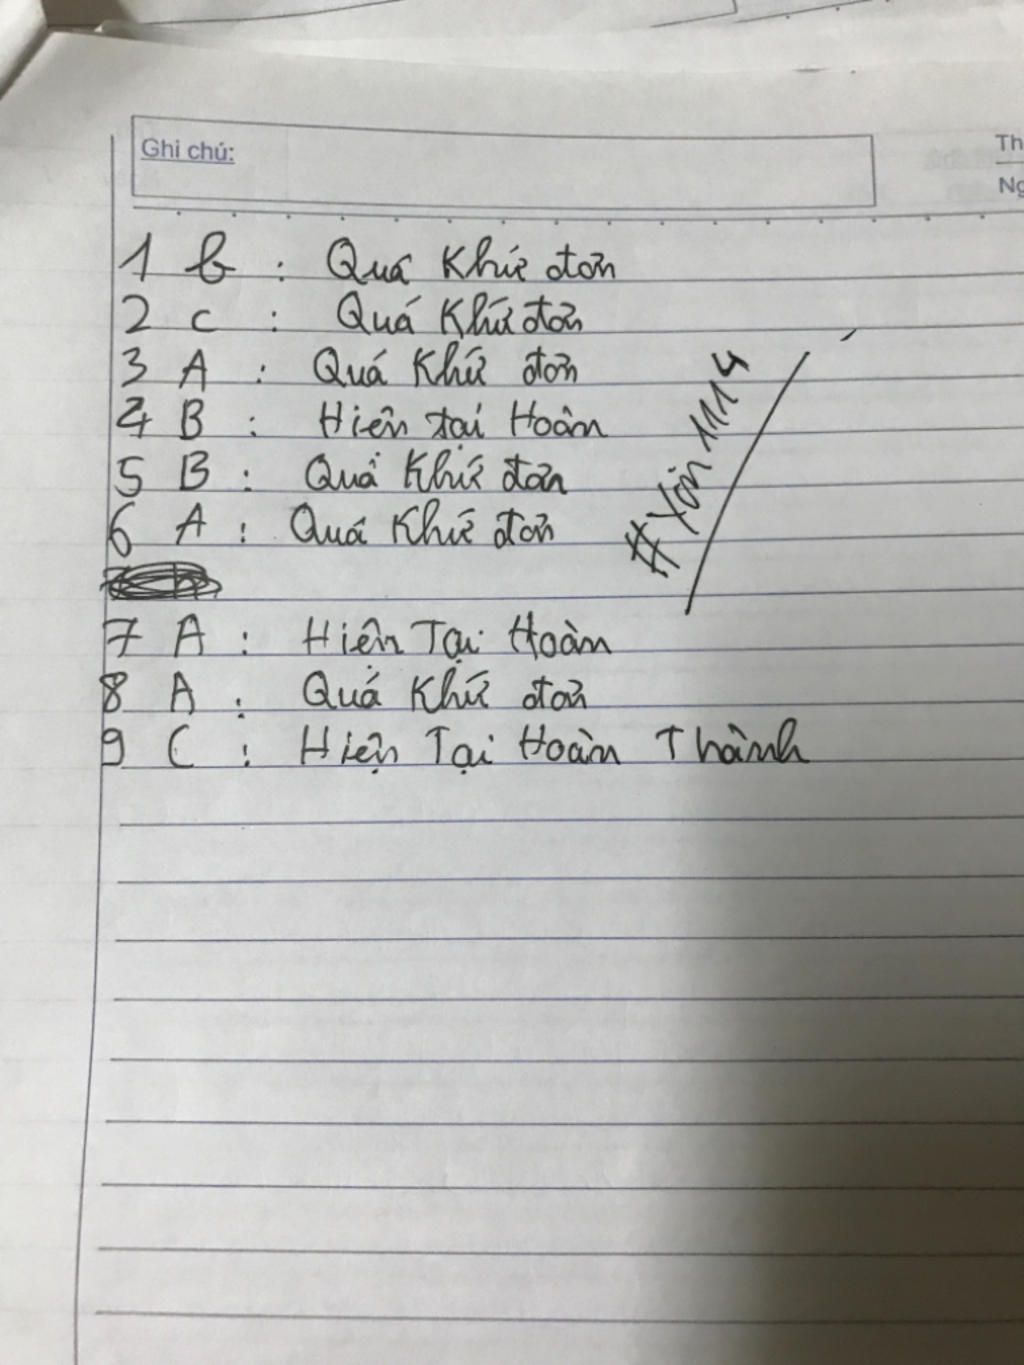 Ghi chú:
Th
Ng
1 b : Quá Khứ đơn
2 c : Quá Khứ đơn
3 A : Quá Khứ đơn
4 B : Hiện tại Hoàn
5 B : Quá Khứ đơn
6 A : Quá Khứ đơn
7 A : Hiện Tại Hoàn
8 A : Quá Khứ đơn
9 C : Hiện Tại Hoàn Thành
#Yôn1114